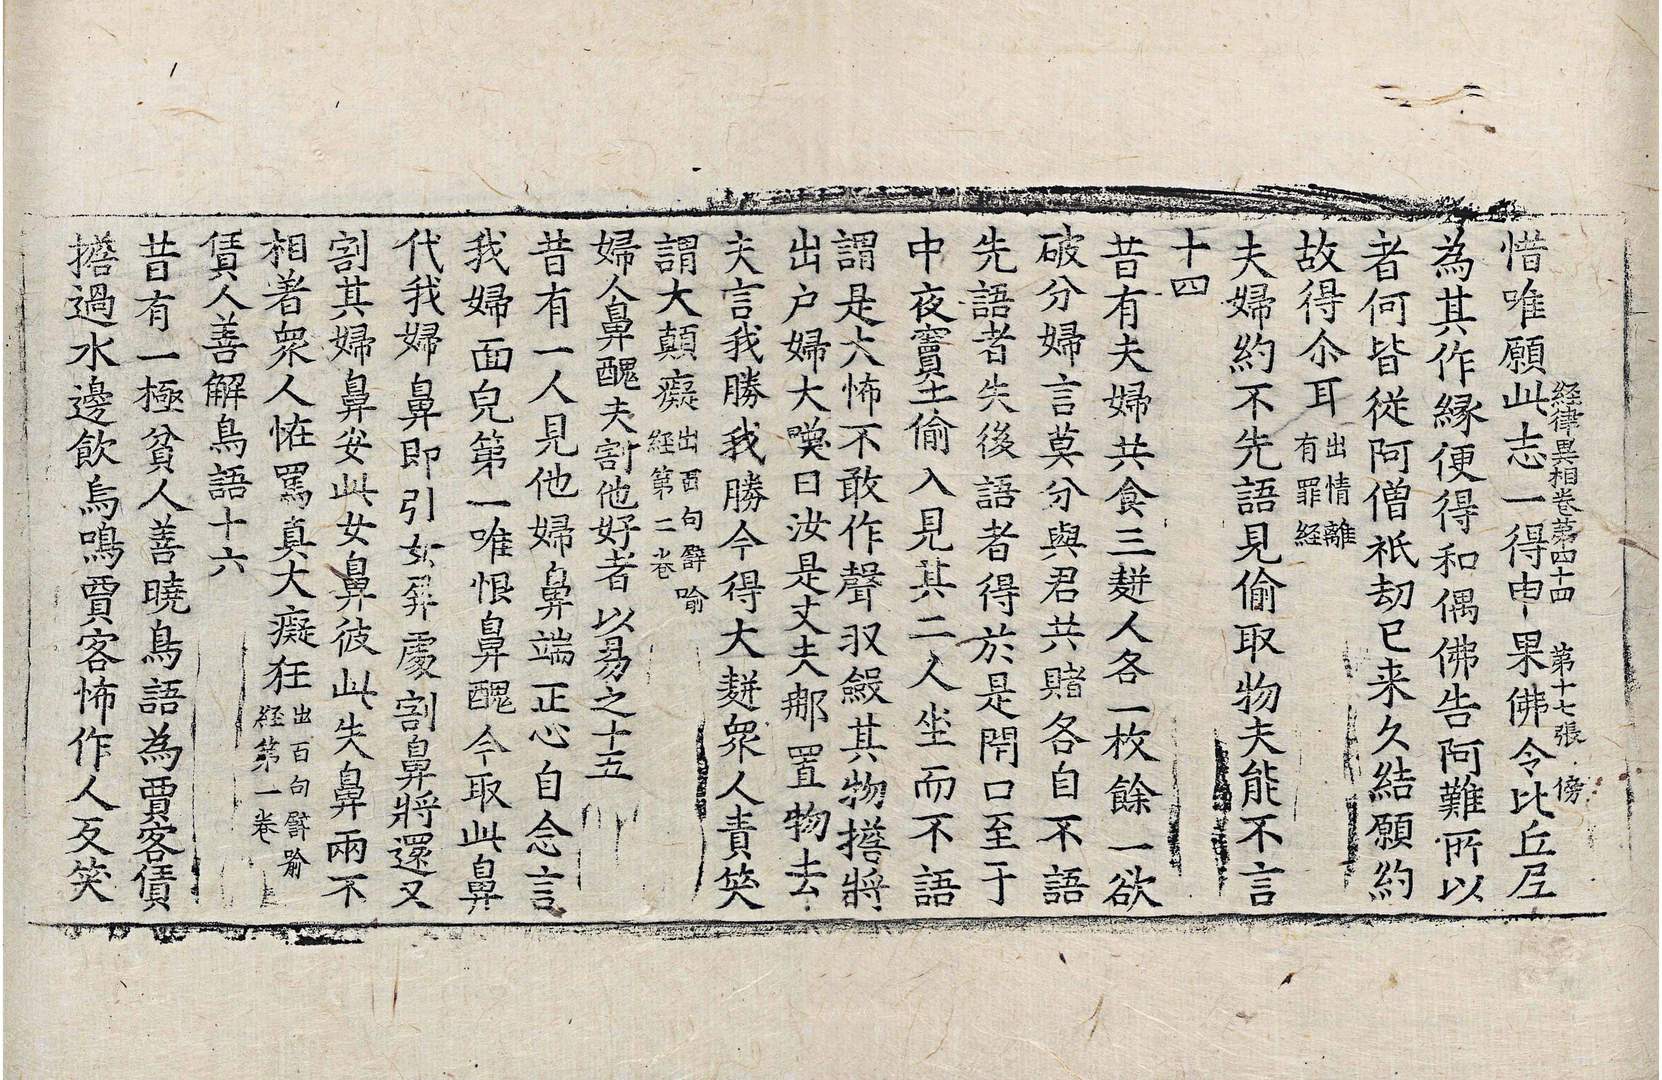 経律異相卷第四十四 第十七張 傍
惜唯願此志一得申果佛令比丘尼
為其作縁便得和偶佛告阿難所以
者何皆從阿僧祇劫已来久結願約
故得尒耳出情離有罪経
夫婦約不先語見偷取物夫能不言
十四
昔有夫婦共食三䴵人各一枚餘一欲
破分婦言莫分與君共賭各自不語
先語者失後語者得於是閇口至于
中夜竇圭偷入見其二人坐而不語
謂是大怖不敢作聲収斂其物擔將
出户婦大嘆曰汝是丈夫那置物去
夫言我勝我勝今得大䴵衆人責笑
謂大顛癡出百句譬喻経第二卷
婦人鼻醜夫割他好者以易之十五
昔有一人見他婦鼻端正心自念言
我婦面皃第一唯恨鼻醜今取此鼻
代我婦鼻即引女屏處割鼻將還又
割其婦鼻安此女鼻彼此失鼻兩不
相著衆人恠罵真大癡狂出百句譬喻経第一卷
賃人善解鳥語十六
昔有一極貧人善曉鳥語為賈客債
擔過水邊飲烏鳴賈客怖作人反笑